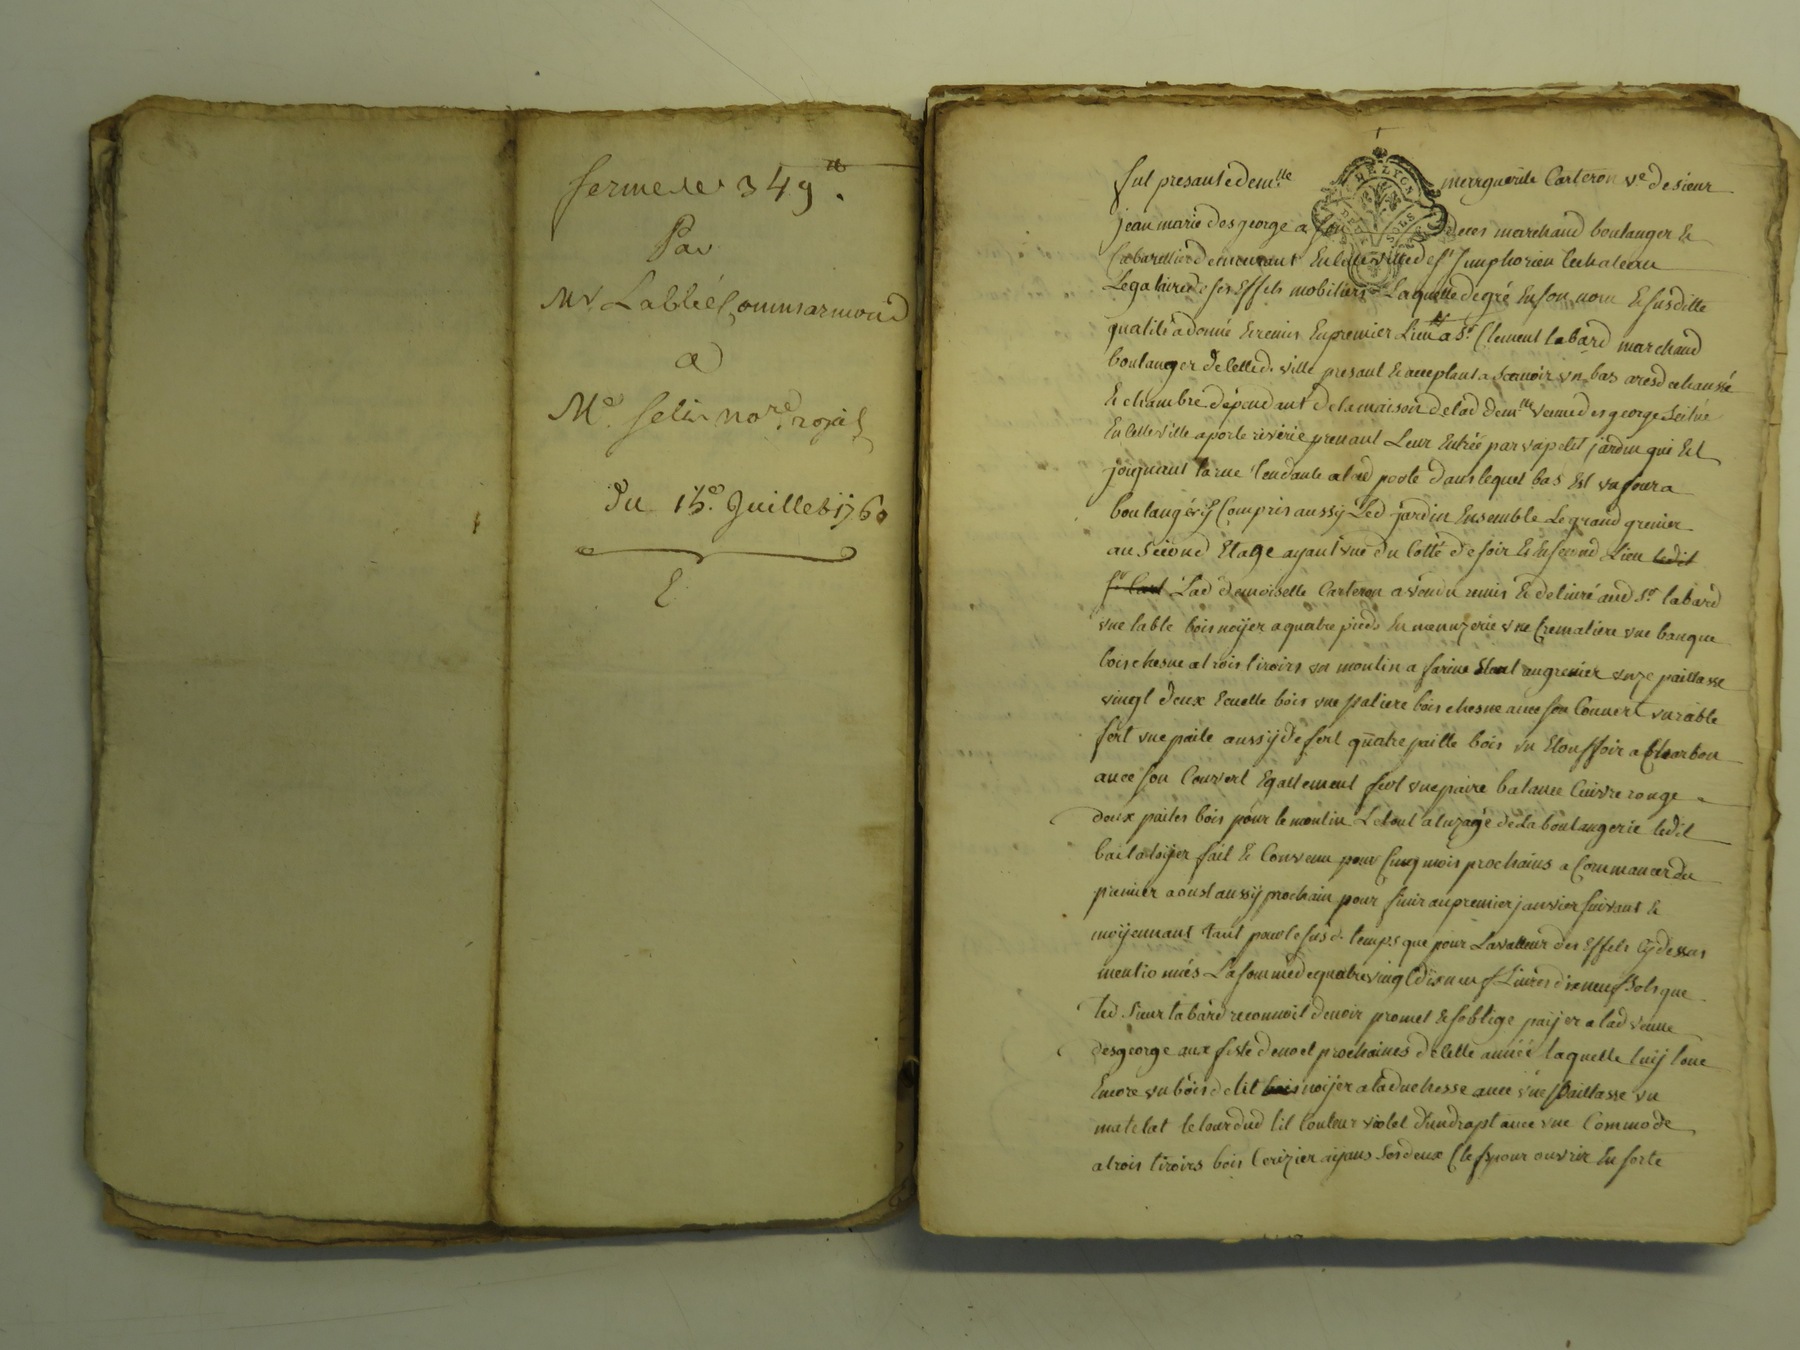 ferme de 349 ₶.
Par
Mr Labbé Commarmond
a
Me. felix nore. royal
Du 15e. Juillet 1760
fut presante demlle merguerite Carteron ve de sieur
jean marie desgeorge a son deces marchand boulanger &
Cabarettier demeurant En cette ville de st simphorien lechateau
Legataire de ses Effets mobiliers Laquelle de gré En son nom & susditte
qualité a donné & remis En premier Lieu a sr. Clement tabard marchand
boulanger de cette d. ville presant & acceptant a scavoir vn bas aresdechaussé
& chambre dépendant de la maison de lad demlle veuve desgeorge scitué
En cette ville a porte riverie prenant Leur Entrée par vn petit jardin qui Est
joignant la rue tendante a lad porte dans lequel bas Est vn four a
boulanger y Compris aussy Led jardin Ensemble Le grand grenier
au second Etage ayant vue du Cotté de soir & En second Lieu ledit
sr Cart Lad demoiselle Carteron a vendu remis & delivré aud sr. tabard
vne table bois noyer a quatre pieds En menuzerie vne Crematiere vne banque
bois chesne a trois tiroirs vn moulin a farine Etant au grenier vnze paillasse
vingt deux Ecuelle bois vne patiere bois chesne avec son Couvert vn rable
fert vne paile aussy de fert quatre paille bois vn Etouffoir a Charbon
avec son Couvert Egallement fert vne paire balance Cuivre rouge
deux pailes bois pour le moulin Le tout a luzage de la boulangerie ledit
bail a loyer fait & Convenu pour Cinq mois prochains a Commancer du
premier aoust aussy prochain pour finir au premier janvier suivant &
moyennant tant pour le susd. temps que pour La valleur des Effets Cy dessus
mentionnés La somme de quatre vingt dix neuf Livres dix neuf sols que
led. sieur tabard reconnoit devoir promet & soblige payer a lad veuve
desgeorge aux feste de noel prochaines de cette année laquelle luy loue
Encore vn bois de lit bois noyer a la duchesse avec vne paillasse vn
matelat le tour dud lit Couleur violet dun drapt avec vne Commode
a trois tiroirs bois Cerizier ayans ses deux Clefs pour ouvrir En sorte